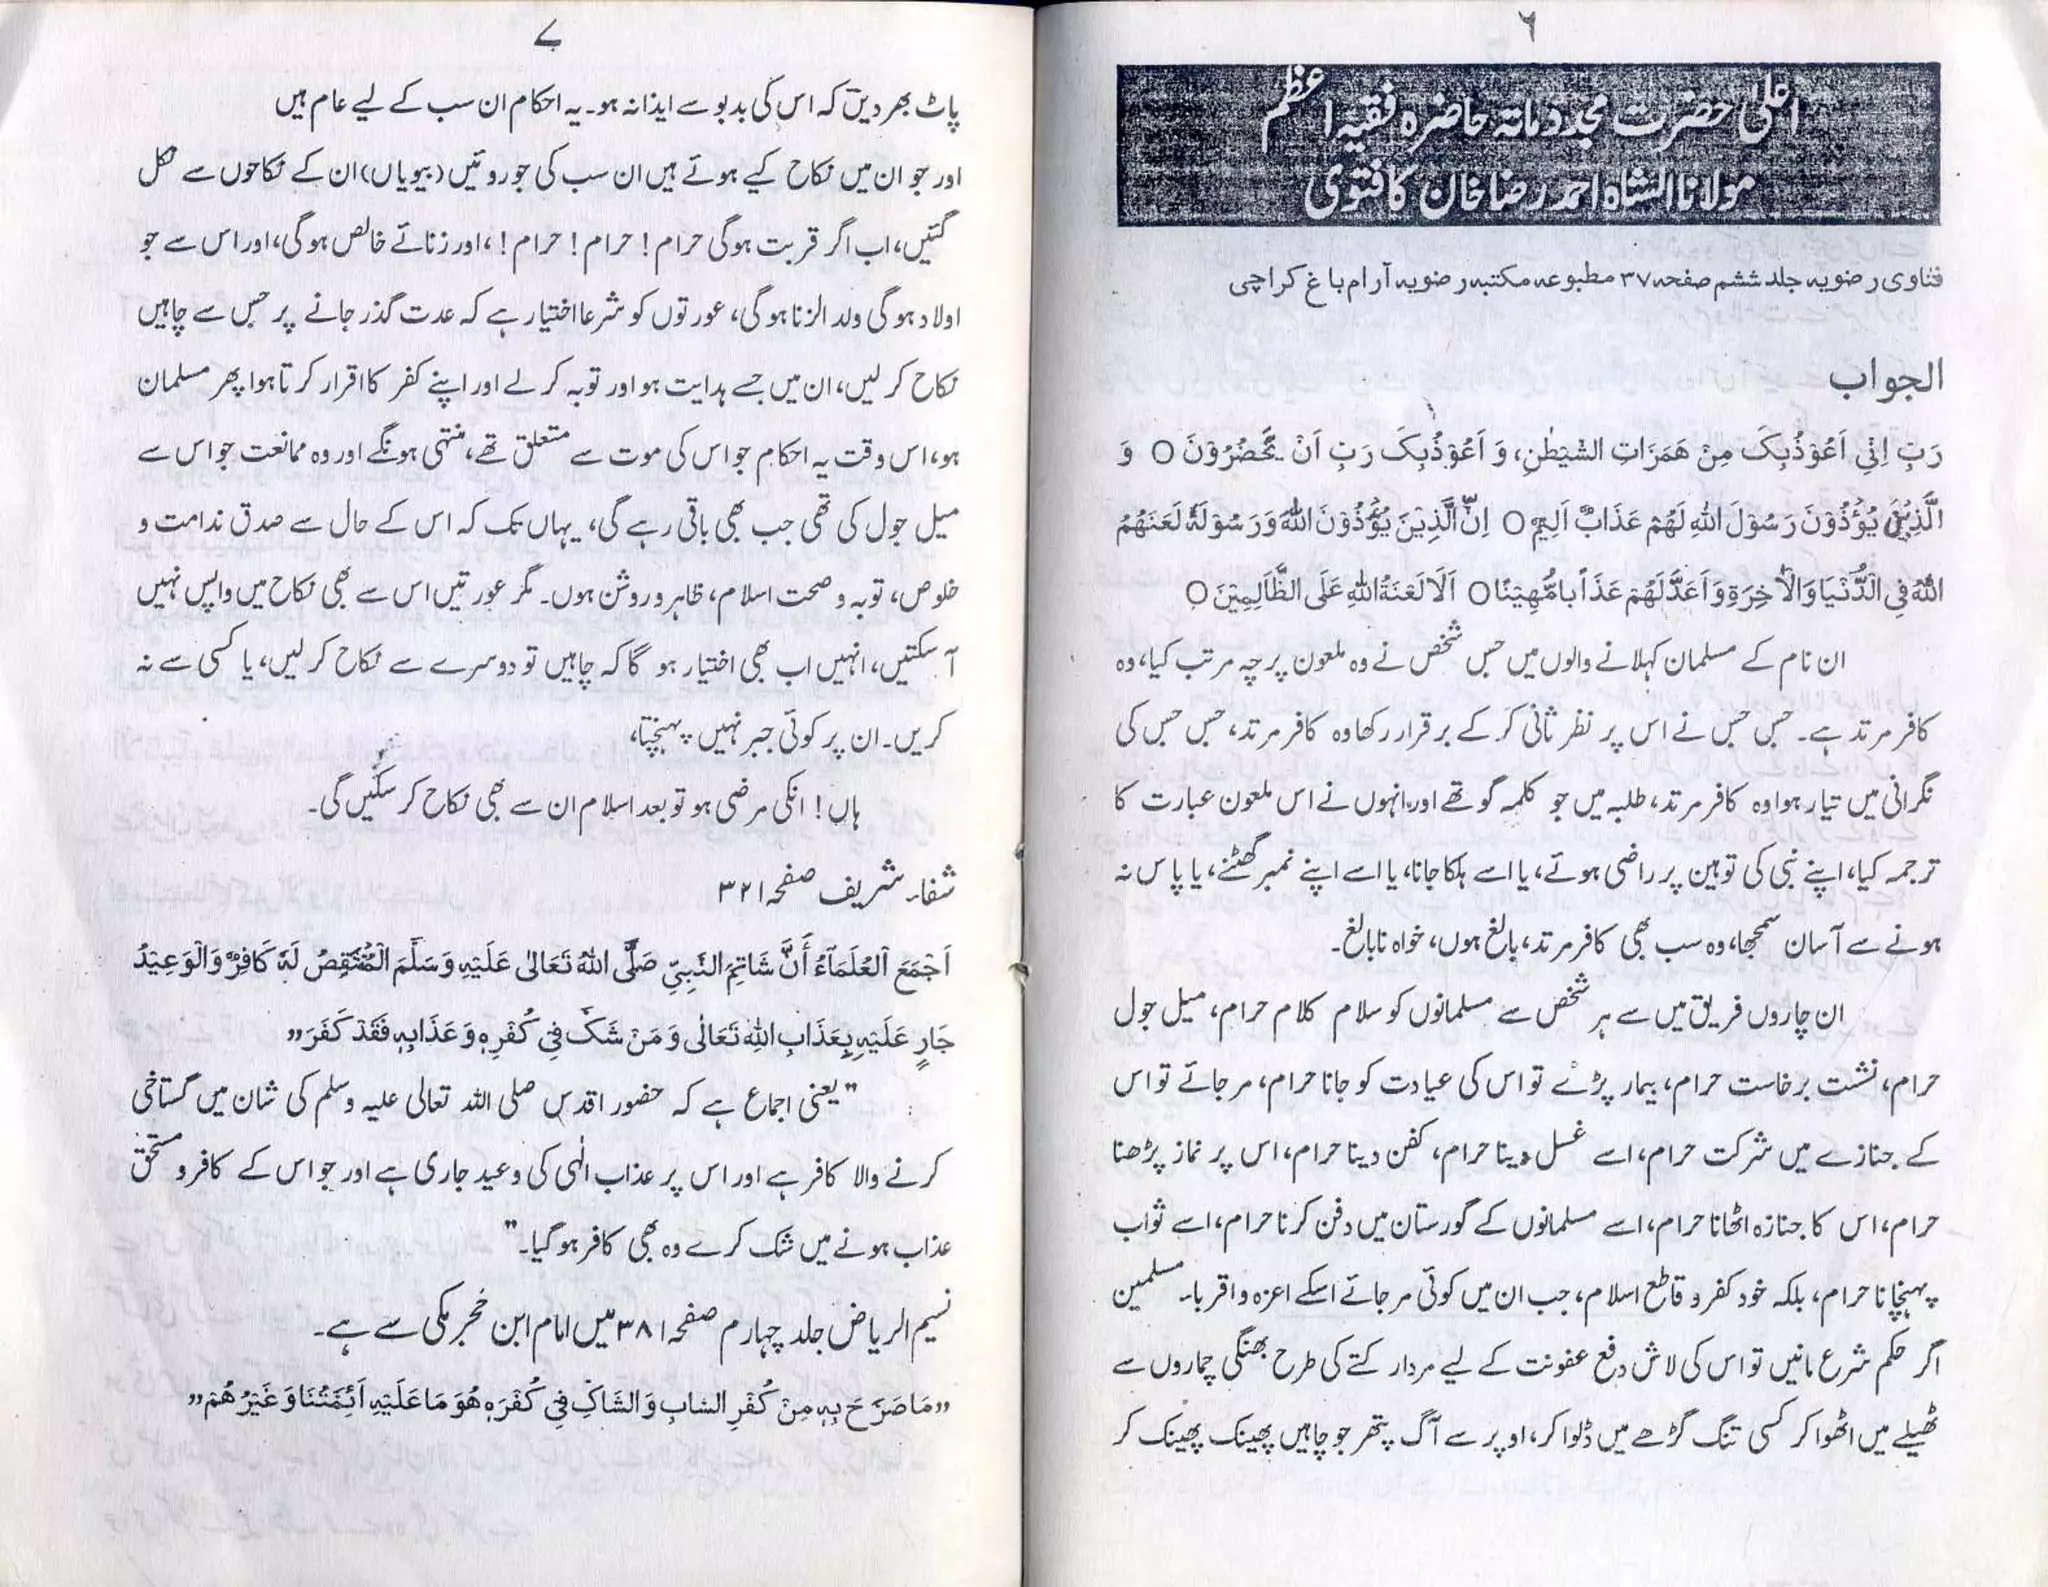 ۶
اعلیٰ حضرت مجدد مائۃ حاضرہ فقیہ اعظم
مولانا الشاہ احمد رضا خان کا فتویٰ
فتاوی رضویہ جلد ششم صفحہ ۳۷ مطبوعہ مکتبہ رضویہ آرام باغ کراچی
الجواب
رَبِّ اِنِّی اَعُوْذُبِکَ مِنْ هَمَزَاتِ الشَّیٰطٰنِ، وَ اَعُوْذُبِکَ رَبِّ اَنْ یَّحْضُرُوْنَ ○ وَ
الَّذِیْنَ یُؤْذُوْنَ رَسُوْلَ اللهِ لَهُمْ عَذَابٌ اَلِیْمٌ ○ اِنَّ الَّذِیْنَ یُؤْذُوْنَ اللهَ وَرَسُوْلَهٗ لَعَنَهُمُ
اللهُ فِی الدُّنْیَا وَالْاٰخِرَةِ وَاَعَدَّ لَهُمْ عَذَاباً مُّهِیْنًا ○ اَلَا لَعْنَةُ اللهِ عَلَی الظَّالِمِیْنَ ○
ان نام کے مسلمان کہلانے والوں میں جس شخص نے وہ ملعون پرچہ مرتب کیا، وہ
کافر مرتد ہے۔ جس جس نے اس پر نظر ثانی کر کے برقرار رکھا وہ کافر مرتد، جس جس کی
نگرانی میں تیار ہوا وہ کافر مرتد، طلبہ میں جو کلمہ گو تھے اور انہوں نے اس ملعون عبارت کا
ترجمہ کیا، اپنے نبی کی توہین پر راضی ہوئے، یا اسے ہلکا جانا، یا اسے اپنے نمبر گھٹنے، یا پاس نہ
ہونے سے آسان سمجھا، وہ سب بھی کافر مرتد، بالغ ہوں، خواہ نابالغ۔
ان چاروں فریق میں سے ہر شخص سے مسلمانوں کو سلام کلام حرام، میل جول
حرام، نشت برخاست حرام، بیمار پڑے تو اس کی عیادت کو جانا حرام، مر جائے تو اس
کے جنازے میں شرکت حرام، اسے غسل دینا حرام، کفن دینا حرام، اس پر نماز پڑھنا
حرام، اس کا جنازہ اٹھانا حرام، اسے مسلمانوں کے گورستان میں دفن کرنا حرام، اسے ثواب
پہنچانا حرام، بلکہ خود کفر و قاطع اسلام، جب ان میں کوئی مر جائے اسکے اعزہ و اقرباء مسلمین
اگر حکم شرع مانیں تو اس کی لاش دفع عفونت کے لیے مردار کتے کی طرح بھنگی چماروں سے
ٹھیلے میں اٹھوا کر کسی تنگ گڑھے میں ڈلوا کر، اوپر سے آگ پتھر جو چاہیں پھینک پھینک کر
۷
پاٹ بھر دیں کہ اس کی بدبو سے ایذا نہ ہو۔ یہ احکام ان سب کے لیے عام ہیں
اور جو ان میں نکاح کیے ہوئے ہیں ان سب کی جوروئیں (بیویاں) ان کے نکاحوں سے نکل
گئیں، اب اگر قربت ہوگی حرام! حرام! حرام!، اور زنائے خالص ہوگی، اور اس سے جو
اولاد ہوگی ولد الزنا ہوگی، عورتوں کو شرعا اختیار ہے کہ عدت گذر جانے پر جس سے چاہیں
نکاح کر لیں، ان میں جسے ہدایت ہو اور توبہ کر لے اور اپنے کفر کا اقرار کرتا ہوا پھر مسلمان
ہو، اس وقت یہ احکام جو اس کی موت سے متعلق تھے، منتہی ہونگے اور وہ ممانعت جو اس سے
میل جول کی تھی جب بھی باقی رہے گی، یہاں تک کہ اس کے حال سے صدق ندامت و
خلوص، توبہ و صحت اسلام، ظاہر و روشن ہوں۔ مگر عورتیں اس سے بھی نکاح میں واپس نہیں
آ سکتیں، انہیں اب بھی اختیار ہو گا کہ چاہیں تو دوسرے سے نکاح کر لیں، یا کسی سے نہ
کریں۔ ان پر کوئی جبر نہیں پہنچتا،
ہاں! انکی مرضی ہو تو بعد اسلام ان سے بھی نکاح کر سکیں گی۔
شفاء شریف صفحہ ۳۲۱
اَجْمَعَ الْعُلَمَآءُ أَنَّ شَاتِمَ النَّبِیِّ صَلَّی اللهُ تَعَالٰی عَلَیْهِ وَسَلَّمَ الْمُنَقِّصُ لَهٗ کَافِرٌ وَالْوَعِیْدُ
جَارٍ عَلَیْهِ بِعَذَابِ اللهِ تَعَالٰی وَ مَنْ شَکَّ فِیْ کُفْرِهٖ وَ عَذَابِهٖ فَقَدْ کَفَرَ„
"یعنی اجماع ہے کہ حضور اقدس صلی اللہ تعالی علیہ وسلم کی شان میں گستاخی
کرنے والا کافر ہے اور اس پر عذاب الٰہی کی وعید جاری ہے اور جو اس کے کافر و مستحق
عذاب ہونے میں شک کرے وہ بھی کافر ہو گیا۔"
نسیم الریاض جلد چہارم صفحہ ۳۸۱ میں امام ابن حجر مکی سے ہے۔
„مَا صَرَّحَ بِهٖ مِنْ کُفْرِ السَّابِ وَالشَّاکِ فِیْ کُفْرِهٖ هُوَ مَا عَلَیْهِ اَئِمَّتُنَا وَ غَیْرُهُمْ„